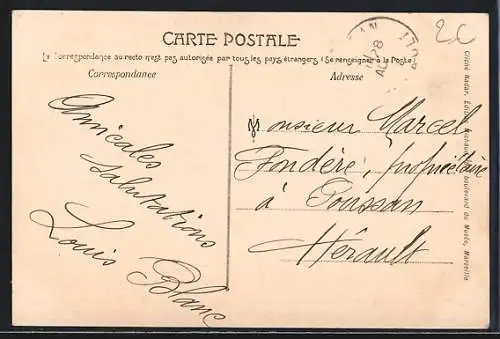 CARTE POSTALE
La Correspondance au recto n'est pas autorisée par tous les pays étrangers (Se renseigner à la Poste)
Correspondance
Adresse
Amicales
salutations
Louis Blanc
Monsieur Marcel
Fondère, propriétaire
à Poussan
Hérault
28
2C
boulevard du Musée, Marseille